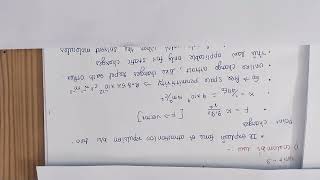 Unit - 3
Coulomb's law :-
• It explain force of attraction (or) repulsion b/w two
Point charges
F = K q₁q₂/r² [F → vector]
K = 1/4πε₀ = 9×10⁹ N m²/C²
ε₀ → free space permittivity = 8.854 × 10⁻¹² C² N⁻¹ m⁻²
• Unlike charge attract like charges Repel each other
• This law applicable only for static charges
when the solvent molecules